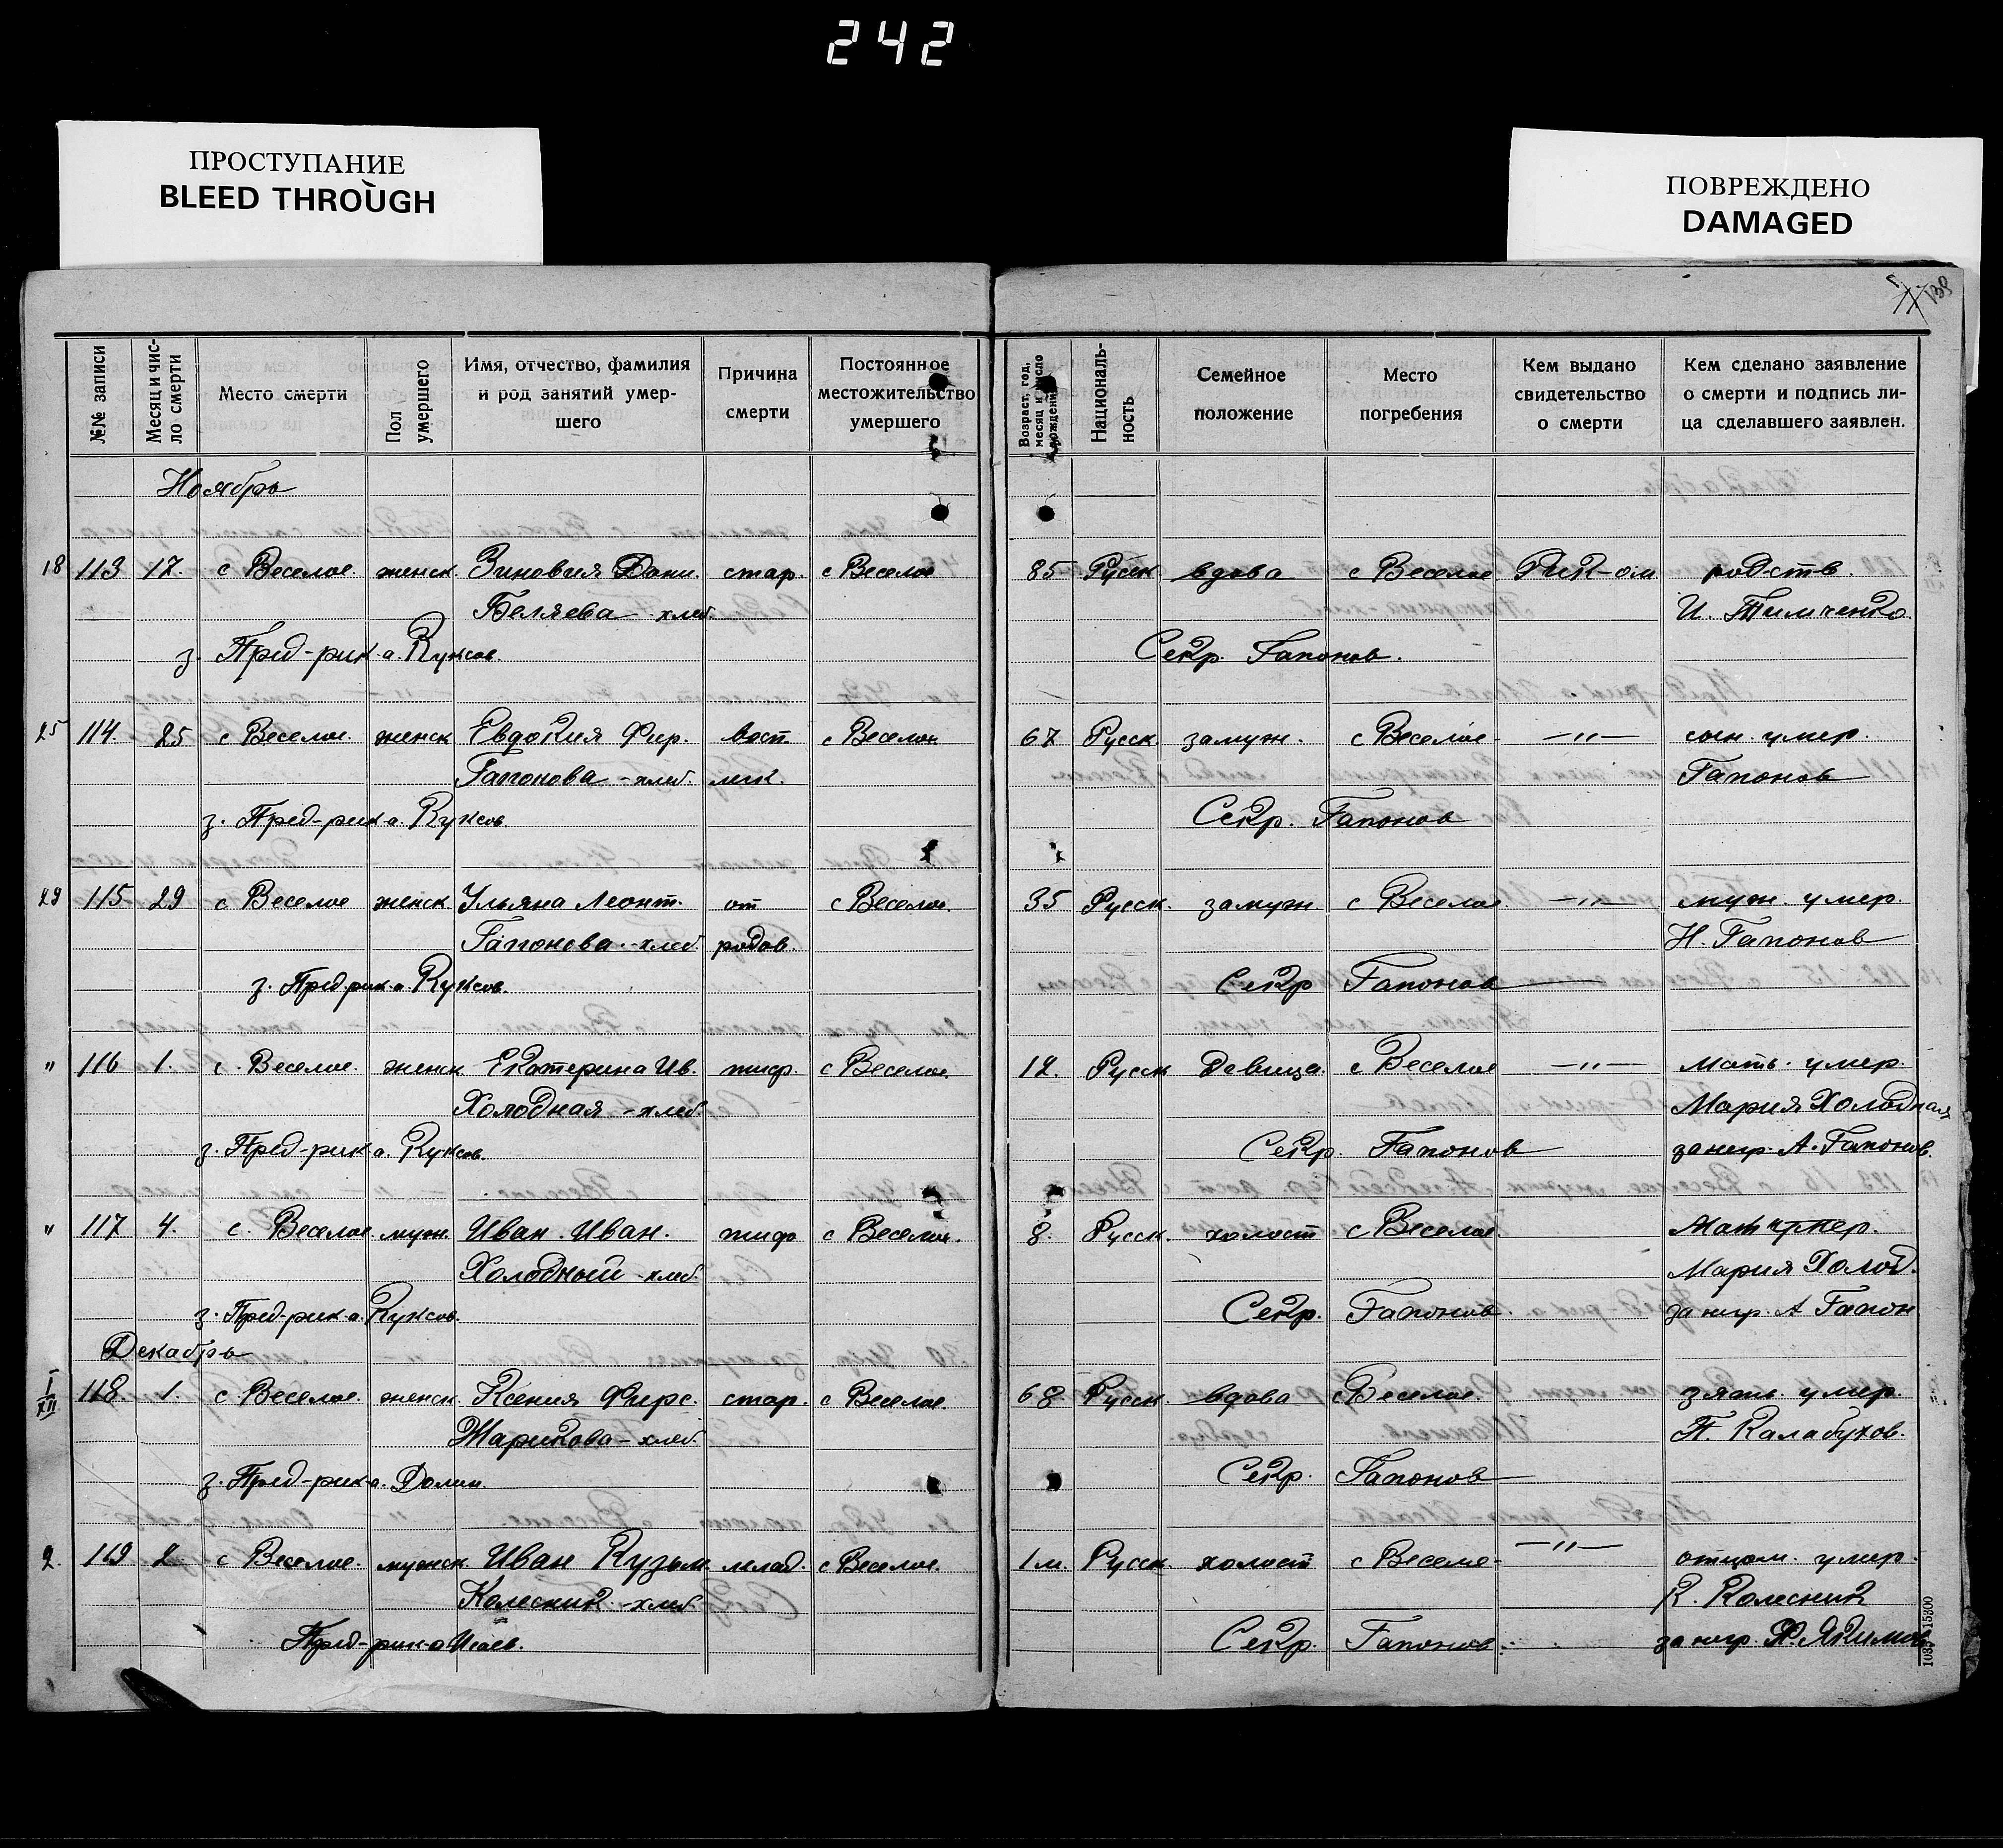 242
ПРОСТУПАНИЕ
BLEED THROUGH
ПОВРЕЖДЕНО
DAMAGED
138
№№ записи | Месяц и число смерти | Место смерти | Пол умершего | Имя, отчество, фамилия и род занятий умершего | Причина смерти | Постоянное местожительство умершего | Возраст, год, месяц и число рождения | Националь-ность | Семейное положение | Место погребения | Кем выдано свидетельство о смерти | Кем сделано заявление о смерти и подпись ли-ца сделавшего заявлен.
Ноябрь
18 113 17. с Веселое. женск. Зиновия Дани. стар. с Веселое 85 Русск. вдова с Веселое Рик-ом родств.
Беляева - хлеб. И. Тимченко.
з. Пред-рик а. Секр. Гапонов.
25 114. 25 с Веселое. женск Евдокия Фир. восп. с Веселое 67 Русск. замуж. с Веселое - -"- сын. умер.
Гапонова - хлеб. лег. Гапонов
з. Пред-рик а. Секр. Гапонов
29 115 29 с Веселое женск Ульяна Леонт. от с Веселое. 35 Русск. замуж. с Веселое -"- муж. умер
Гапонова. - хлеб. родов. Н. Гапонов
з. Пред рик а. Секр Гапонов
" 116 1. с. Веселое. женск Екатерина Ив. тиф. с Веселое. 12. Русск девица. с Веселое -"- мать. умер
Холодная - хлеб. Мария Холодная
з. Пред-рик а. Секр. Гапонов за негр. А. Гапонов.
" 117 4. с. Веселое. муж. Иван. Иван. тиф с Веселое. 8. Русск. холост с Веселое. Мать умер.
Холодный - хлеб. Мария Холод.
з. Пред-рик а. Секр. Гапонов. за негр. А Гапон
Декабрь
I/XII 118. 1. с. Веселое. женск. Ксения Фирс. стар. с Веселое. 68. Русск. вдова с Веселое. зять. умер.
Жарикова - хлеб. П. Калабухов.
з. Пред-рик а. Долин. Секр. Гапонов
2. 119 2 с Веселое. мужск. Иван Кузьм. млад. с Веселое. 1 м. Русск. холост с Веселое - -"- отцом. умер.
Колесник. - хлеб. К. Колесник
Пред-рик а Исаев. Секр. Гапонов. за негр. Ф. Якимов